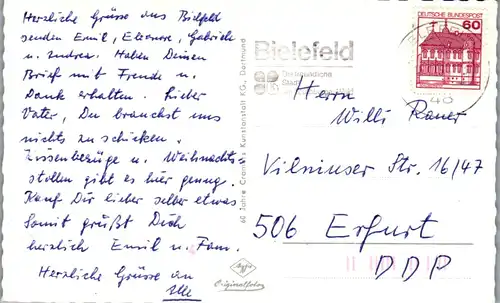 Herzliche Grüsse aus Bielefeld
senden Emil, Eleonore, Gabriele
u. Andrea. Haben Deinen
Brief mit Freude u.
Dank erhalten. Lieber
Vater, Du brauchst uns
nichts zu schicken.
Kissenbezüge u. Weihnachts-
stollen gibt es hier genug.
Kauf Dir lieber selber etwas
Somit grüßt Dich
herzlich Emil u. Fam.
Herzliche Grüsse an
Alle
60 Jahre Cramers Kunstanstalt KG., Dortmund
Agfa
Originalfoto
Bielefeld
Die freundliche
Stadt
DEUTSCHE BUNDESPOST
60
40
Herrn
Willi Rauer
Vilniuser Str. 16/47
506 Erfurt
DDR